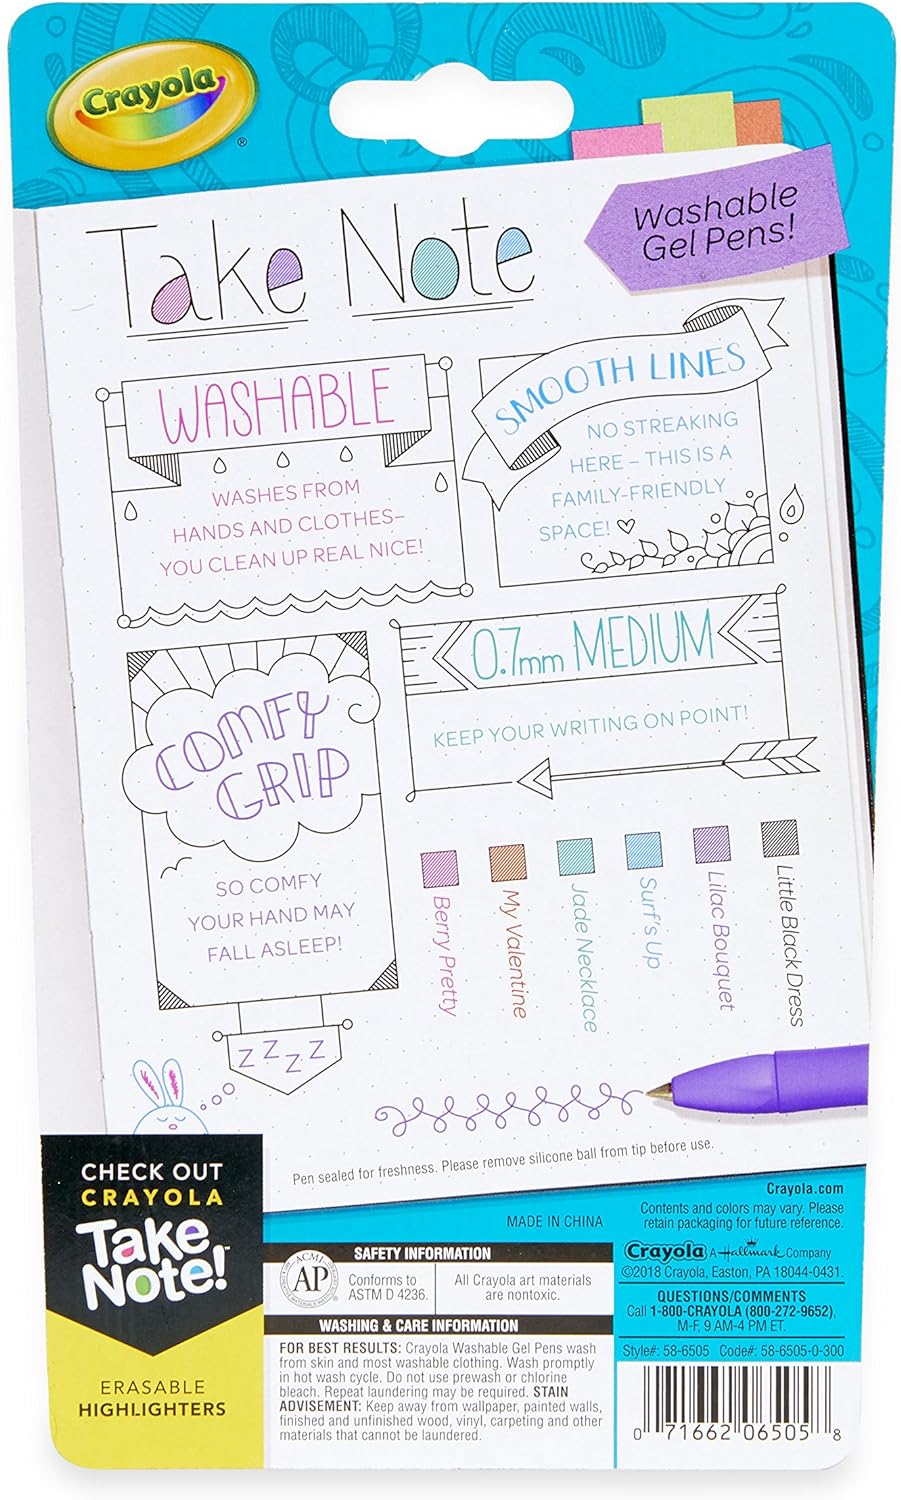 Crayola
®
Washable
Gel Pens!
Take Note
WASHABLE
WASHES FROM
HANDS AND CLOTHES–
YOU CLEAN UP REAL NICE!
SMOOTH LINES
NO STREAKING
HERE – THIS IS A
FAMILY-FRIENDLY
SPACE!
COMFY
GRIP
SO COMFY
YOUR HAND MAY
FALL ASLEEP!
Z Z Z Z
0.7mm MEDIUM
KEEP YOUR WRITING ON POINT!
Berry Pretty
My Valentine
Jade Necklace
Surf's Up
Lilac Bouquet
Little Black Dress
Pen sealed for freshness. Please remove silicone ball from tip before use.
CHECK OUT
CRAYOLA
Take
Note!™
ERASABLE
HIGHLIGHTERS
MADE IN CHINA
SAFETY INFORMATION
ACMI
AP
Conforms to
ASTM D 4236.
All Crayola art materials
are nontoxic.
WASHING & CARE INFORMATION
FOR BEST RESULTS: Crayola Washable Gel Pens wash
from skin and most washable clothing. Wash promptly
in hot wash cycle. Do not use prewash or chlorine
bleach. Repeat laundering may be required. STAIN
ADVISEMENT: Keep away from wallpaper, painted walls,
finished and unfinished wood, vinyl, carpeting and other
materials that cannot be laundered.
Crayola.com
Contents and colors may vary. Please
retain packaging for future reference.
Crayola A Hallmark Company
©2018 Crayola, Easton, PA 18044-0431.
QUESTIONS/COMMENTS
Call 1-800-CRAYOLA (800-272-9652),
M-F, 9 AM-4 PM ET.
Style#: 58-6505 Code#: 58-6505-0-300
0 71662 06505 8